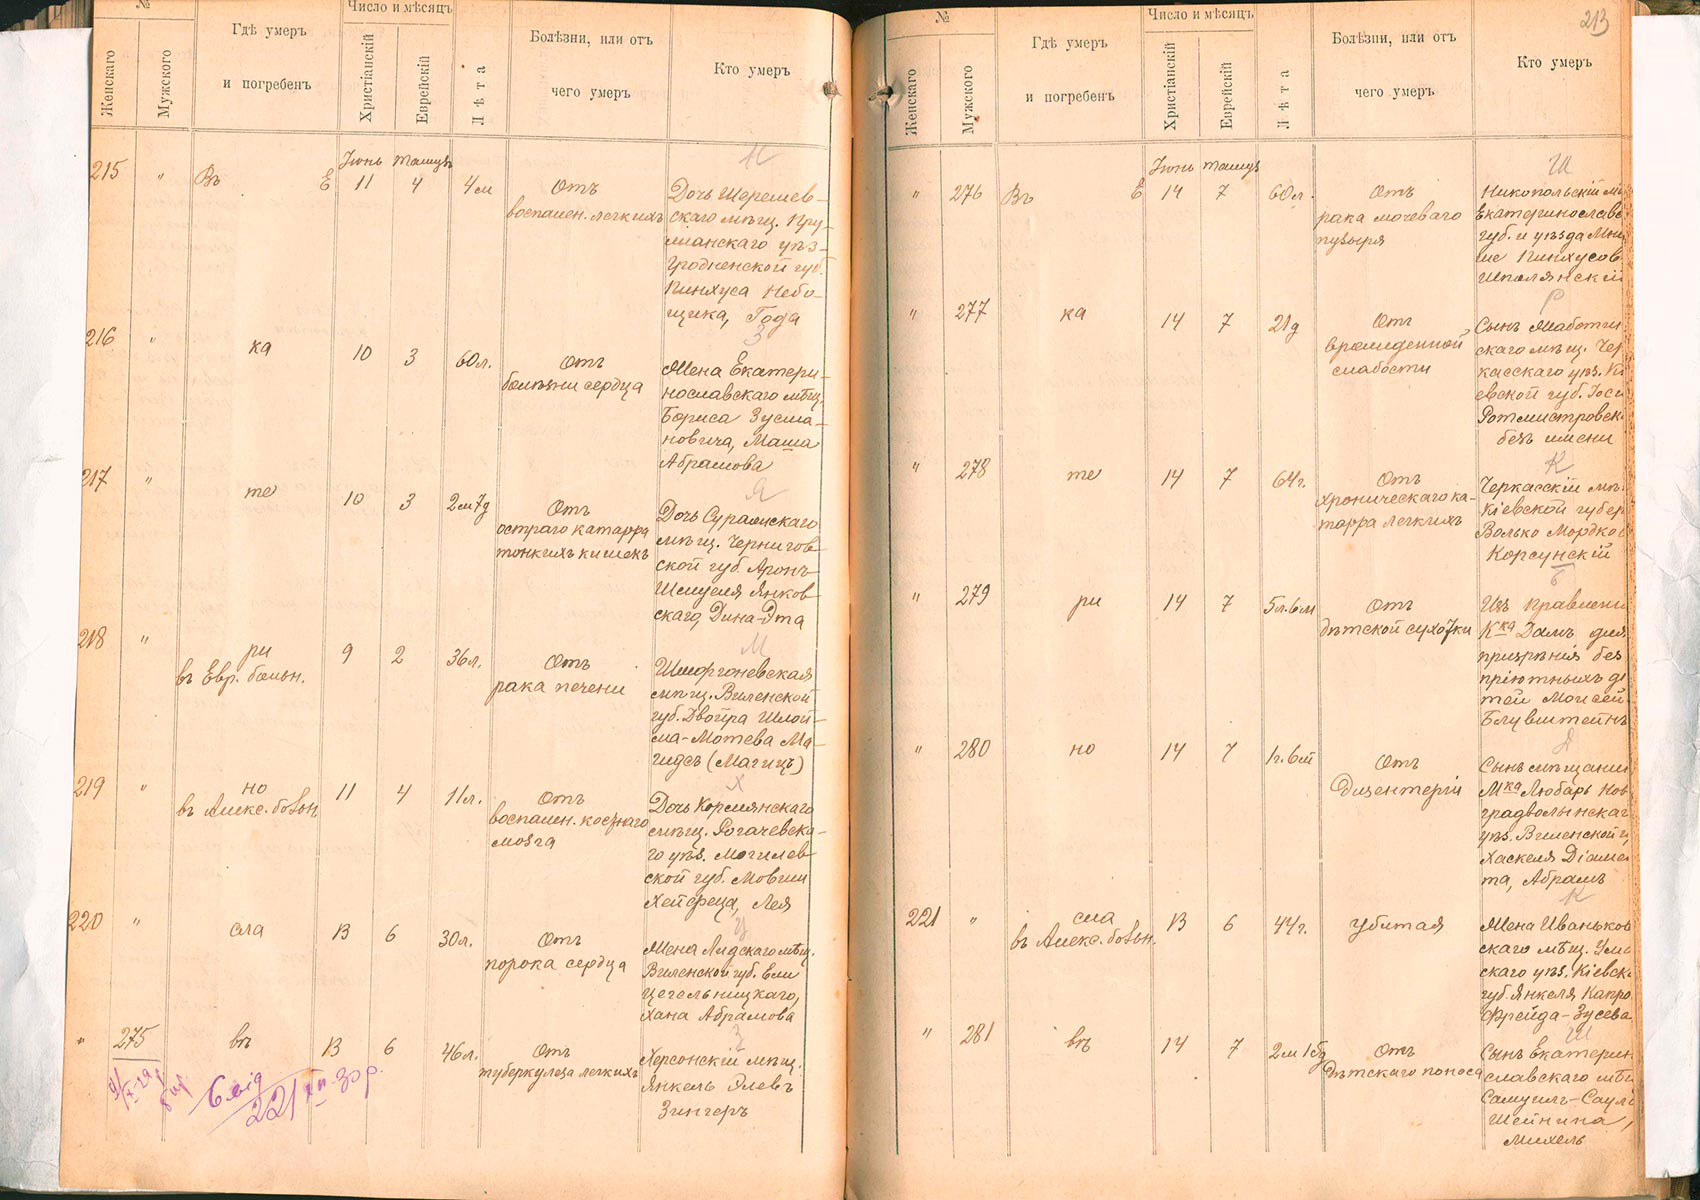 №
Число и мѣсяцъ
Женскаго
Мужского
Гдѣ умеръ
и погребенъ
Христіанскій
Еврейскій
Лѣта
Болѣзни, или отъ
чего умеръ
Кто умеръ
Іюнь Тамузъ
Н
215 " Въ Е 11 4 4м
Отъ
воспален. легкихъ
Дочь Шерешев-
скаго мѣщ. Пру-
жанскаго уѣз.
Гродненской губ.
Пинхуса Небо-
щика, Года
З
216 " ка 10 3 60л.
Отъ
болѣзни сердца
Жена Екатери-
нославскаго мѣщ.
Бориса Зусма-
новича, Маша
Абрамова
Я
217 " те 10 3 2м7д
Отъ
остраго катарра
тонкихъ кишекъ
Дочь Суражскаго
мѣщ. Чернигов-
ской губ. Аронъ-
Шмуеля Янков-
скаго, Дина-Эта
М
218 " ри 9 2 36л.
въ Евр. больн.
Отъ
рака печени
Шморгоневская
мѣщ. Виленской
губ. Двойра Шлой-
ма-Мотева Ма-
гидъ (Магицъ)
Х
219 " но 11 4 11л.
въ Алекс. больн.
Отъ
воспален. костнаго
мозга
Дочь Кормянскаго
мѣщ. Рогачевска-
го уѣз. Могилев-
ской губ. Мовши
Хейфеца, Лея
Ц
220 " сла 13 6 30л.
Отъ
порока сердца
Жена Лидскаго мѣщ.
Виленской губ. Ели
Цегельницкаго,
Хана Абрамова
З
" 275 въ 13 6 46л.
Отъ
туберкулеза легкихъ
Херсонскій мѣщ.
Янкель Элевъ
Зингеръ
221
213
№
Число и мѣсяцъ
Женскаго
Мужского
Гдѣ умеръ
и погребенъ
Христіанскій
Еврейскій
Лѣта
Болѣзни, или отъ
чего умеръ
Кто умеръ
Іюнь Тамуз
Ш
" 276 Въ Е 14 7 60л.
Отъ
рака мочеваго
пузыря
Никопольскій мѣ
Екатеринославс
губ. и уѣзда
Пинхусов
Шполянскій
Р
" 277 ка 14 7 21д
Отъ
врожденной
слабости
Сынъ Жаботин
скаго мѣщ. Чер
касскаго уѣз. Кі
евской губ. Іоси
Ротмистровск
безъ имени
К
" 278 те 14 7 64г.
Отъ
хроническаго ка-
тарра легкихъ
Черкасскій мѣ.
Кіевской губер
Волько Мордков
Корсунскій
Б
" 279 ри 14 7 5л.6м
Отъ
дѣтской сухотки
Изъ правлені
Домъ для
призрѣнія без
пріютныхъ дѣ
тей Моисей
Блувштейнъ
Д
" 280 но 14 7 1г.6м
Отъ
Дизентеріи
Сынъ мѣщанин
Мка Любарь Нов
градволынскаг
уѣз. Виленской г
Хаскеля Діаман
та, Абрамъ
К
221 " сла 13 6 44г.
въ Алекс. больн.
убитая
Жена Иваньков
скаго мѣщ. Ума
скаго уѣз. Кіевск
губ. Янкеля Капро
Фрейда-Зусева
Ш
" 281 въ 14 7 2м 15д
Отъ
дѣтскаго поноса
Сынъ Екатерин
славскаго мѣ
Самуилъ-Саул
Шейнина,
Михель